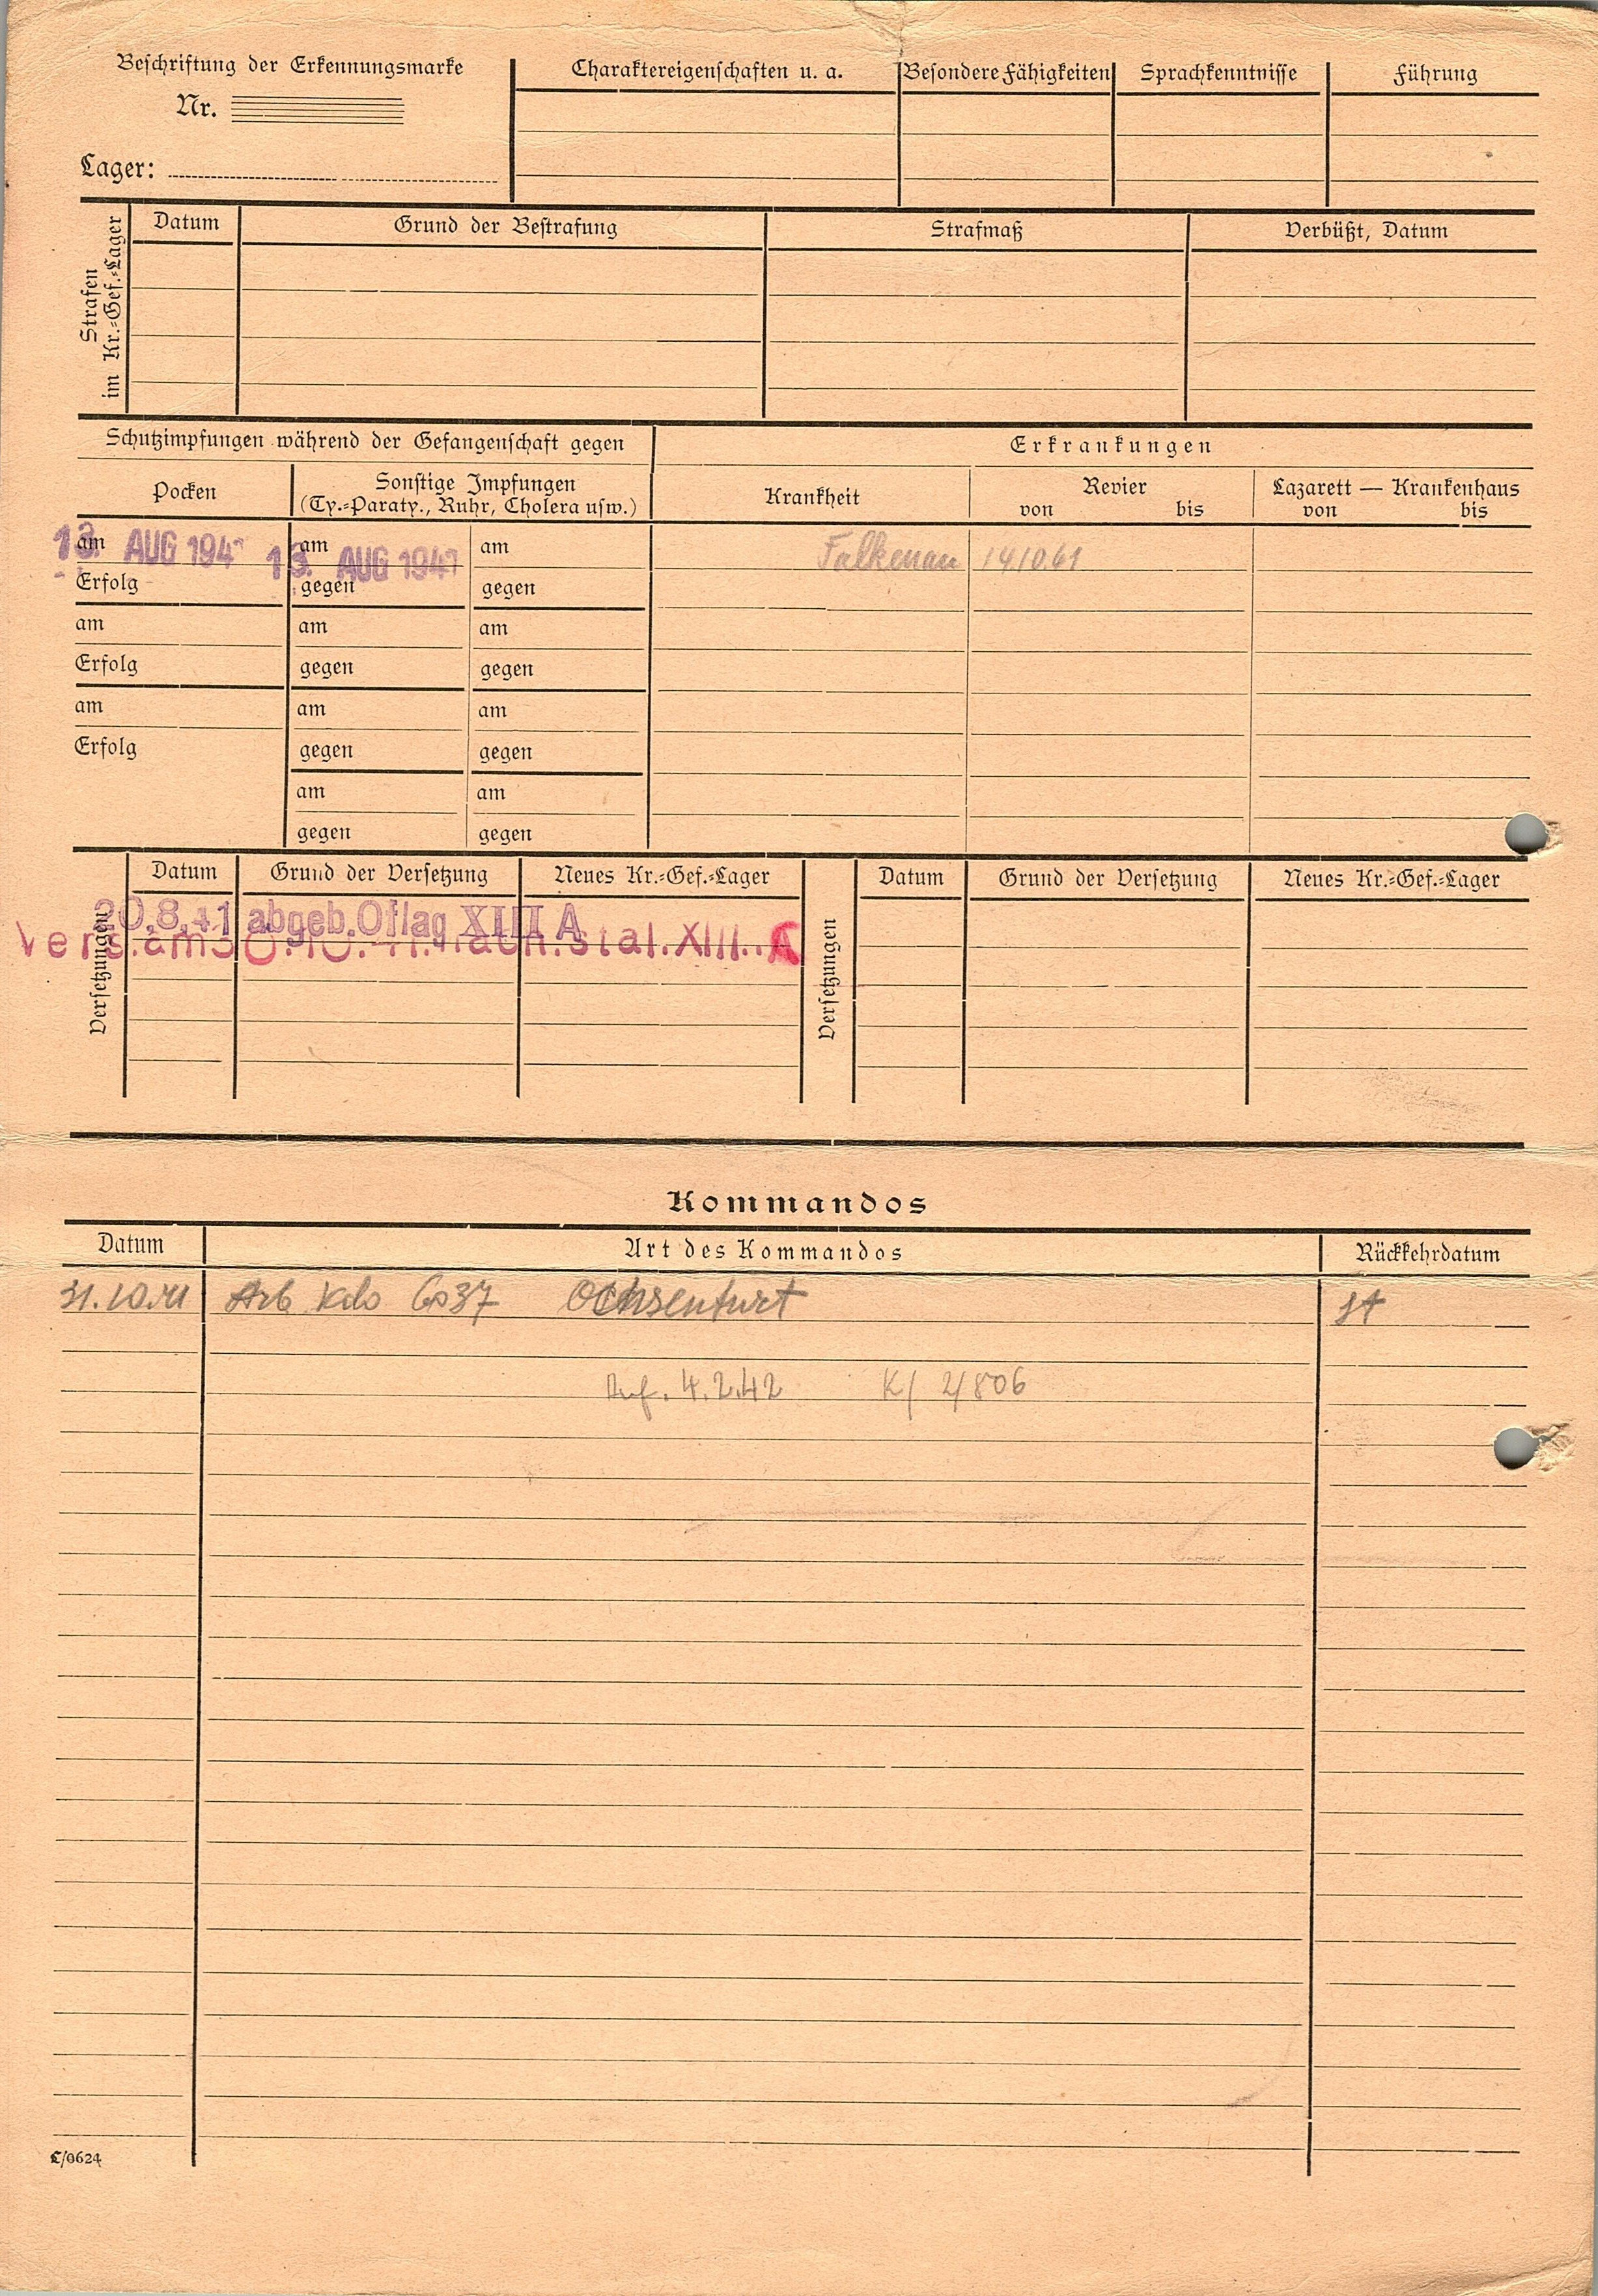 Beschriftung der Erkennungsmarke
Nr.
Lager:
Charaktereigenschaften u. a.
Besondere Fähigkeiten
Sprachkenntnisse
Führung
Strafen
im Kr.-Gef.-Lager
Datum
Grund der Bestrafung
Strafmaß
Verbüßt, Datum
Schutzimpfungen während der Gefangenschaft gegen
Erkrankungen
Pocken
Sonstige Impfungen
(Ty.-Paraty., Ruhr, Cholera usw.)
Krankheit
Revier
von bis
Lazarett — Krankenhaus
von bis
am am am
13. AUG 194 13. AUG 1941
Falkenau 14/10.61
Erfolg gegen gegen
am am am
Erfolg gegen gegen
am am am
Erfolg gegen gegen
am am
gegen gegen
Versetzungen
Datum
Grund der Versetzung
Neues Kr.-Gef.-Lager
Versetzungen
Datum
Grund der Versetzung
Neues Kr.-Gef.-Lager
20.8.41 abgeb. Oflag XIII A
Vers.am30.10.41.nach.stal.XIII..A
Kommandos
Datum
Art des Kommandos
Rückkehrdatum
31.10.41 Arb Kdo 6037 Ochsenfurt
4.2.42 K/ 2/806
C/0624